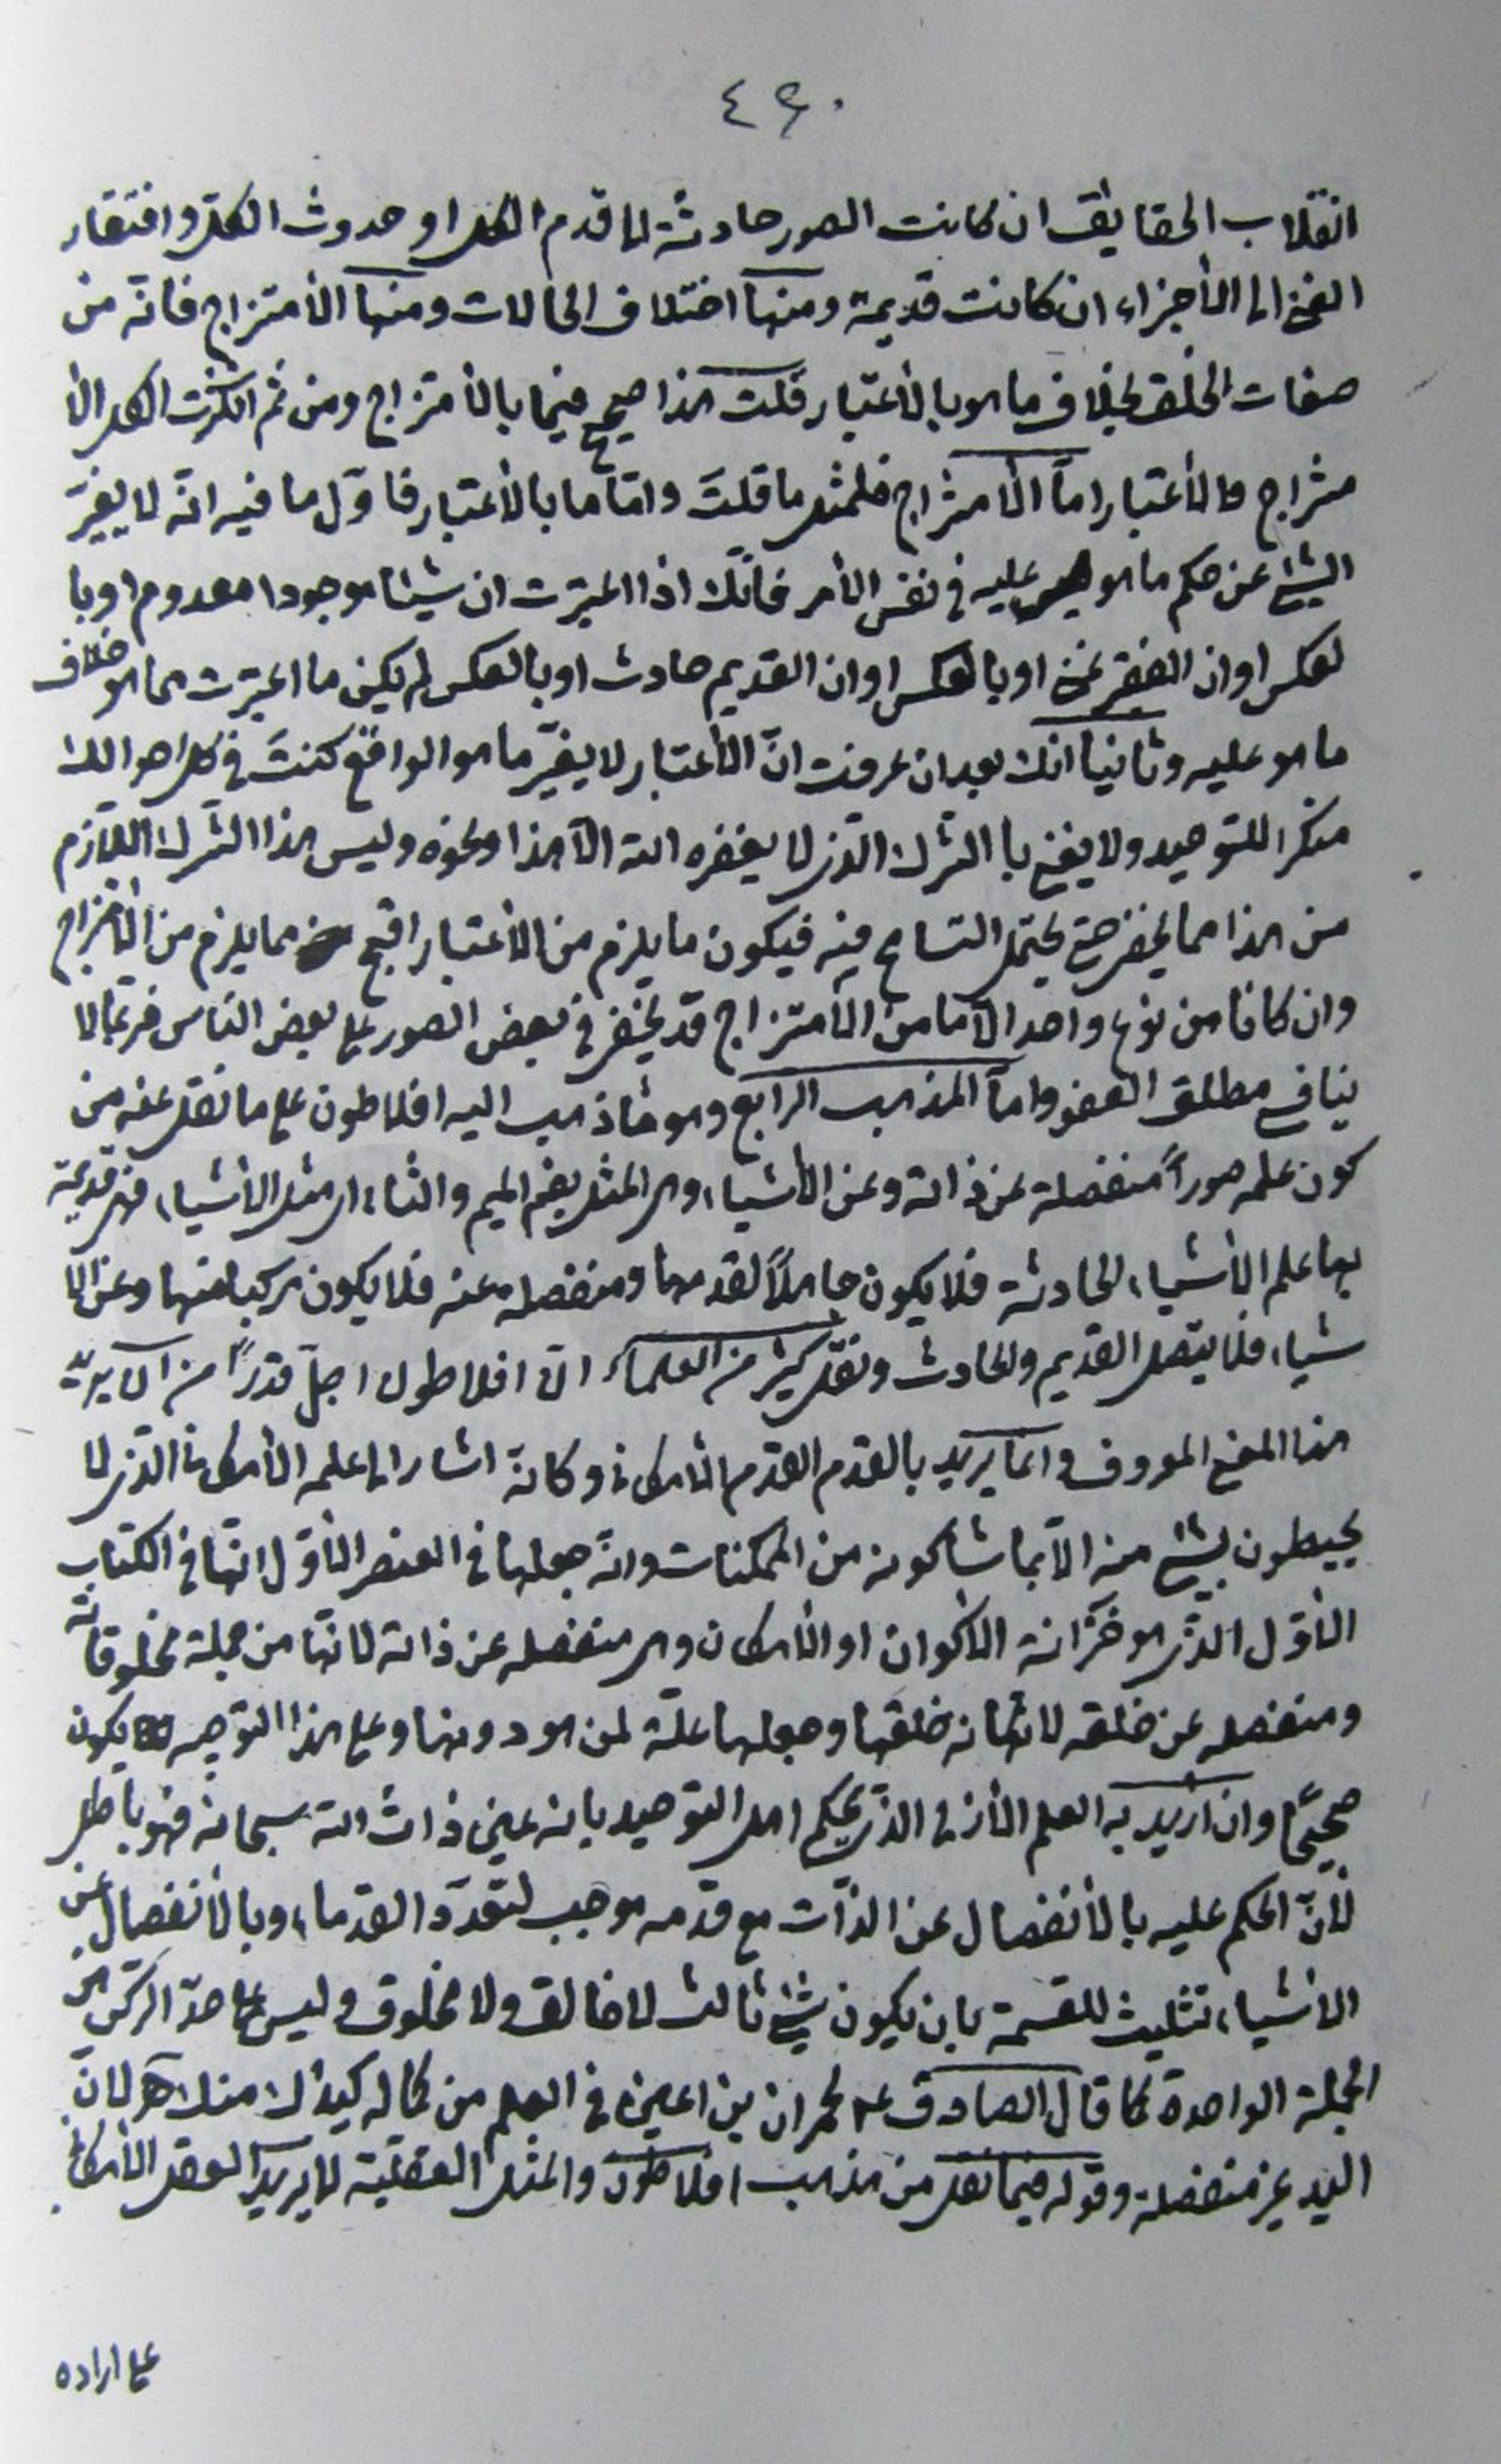 ٤٤٠
انقلاب الحقايق ان كانت الصور حادثة اما قدم الكل او حدوث الكل وافتقار
الغنى الى الأجزاء ان كانت قديمة ومنها اختلاف الحالات ومنها الأمتزاج فانه من
صفات الخلق بخلاف ما هو بالأعتبار قلت هذا صحيح فيما بالأمتزاج ومن ثم انكرت الكل الأ
متزاج والأعتبار اما الأمتزاج فلمثل ما قلت واما ما بالأعتبار فاول ما فيه انه لا يغير
الشئ عن حكم ما هو عليه في نفس الأمر فانك اذا اعتبرت ان شيئا موجودا معدوم او با
لعكس او ان الفقير غنى او بالعكس او ان القديم حادث او بالعكس لم يكن ما اعتبرت مما هو خلاف
ما هو عليه وثانيا انك بعد ان عرفت ان الأعتبار لا يغير ما هو الواقع كنت في كل احوالك
منكرا للتوحيد ولا يعنى با الشرك الذى لا يغفره الله الا هذا ونحوه وليس هذا الشرك اللازم
من هذا مما يخفى حتى يحتمل التسامح فيه فيكون ما يلزم من الأعتبار اقبح مما يلزم من الأمتزاج
وان كانا من نوع واحد الا ما من الأمتزاج قد يخفى في بعض الصور على بعض الناس فربما لا
ينافى مطلق العفو واما المذهب الرابع وهو ما ذهب اليه افلاطون على ما نقل عنه من
كون علمه صوراً منفصلة عن ذاته وعن الأشياء وهى المثل بضم الميم والثاء اى مثل الأشياء فهى قديمة
بها علم الأشياء الحادثة فلا يكون جاهلاً لقدمها ومنفصله عنه فلا يكون مركبا منها وعن الأ
شياء فلا يتصل القديم والحادث ونقل كثير من العلماء ان افلاطون اجل قدراً من ان يريد
هذا المعنى المعروف وانما يريد بالقدم القدم الأمكانى وكانه اشار الى علمه الأمكانى الذى لا
يحيطون بشئ منه الا بما شاء كونه من الممكنات وانه جعلها في العنصر الأول انها في الكتاب
الأول الذى هو خزانة الأكوان او الأمكان وهى منفصله عن ذاته لانها من جملة مخلوقاته
ومنفصله عن خلقه لانه خلقها وجعلها علة لمن هو دونها وعلى هذا التوجيه يكون
صحيحًا وان اريد به العلم الأزلى الذى يحكم اهل التوحيد بانه عين ذات الله سبحانه فهو باطل
لأن الحكم عليه بالأنفصال عن الذات مع قدمه موجب لتعدد القدماء وبالأنفصال عن
الأشياء تثليث للقسمة بان يكون شئ ثالث لا خالق ولا مخلوق وليس على حد الركن من
الجملة الواحدة كما قال الصادق ع لحمران بن اعين في العلم من كماله كيدك منك لان
اليد غير منفصلة وقوله فيما نقل من مذهب افلاطون والمثل العقلية لا يريد العقل الأمكانى
على اراده